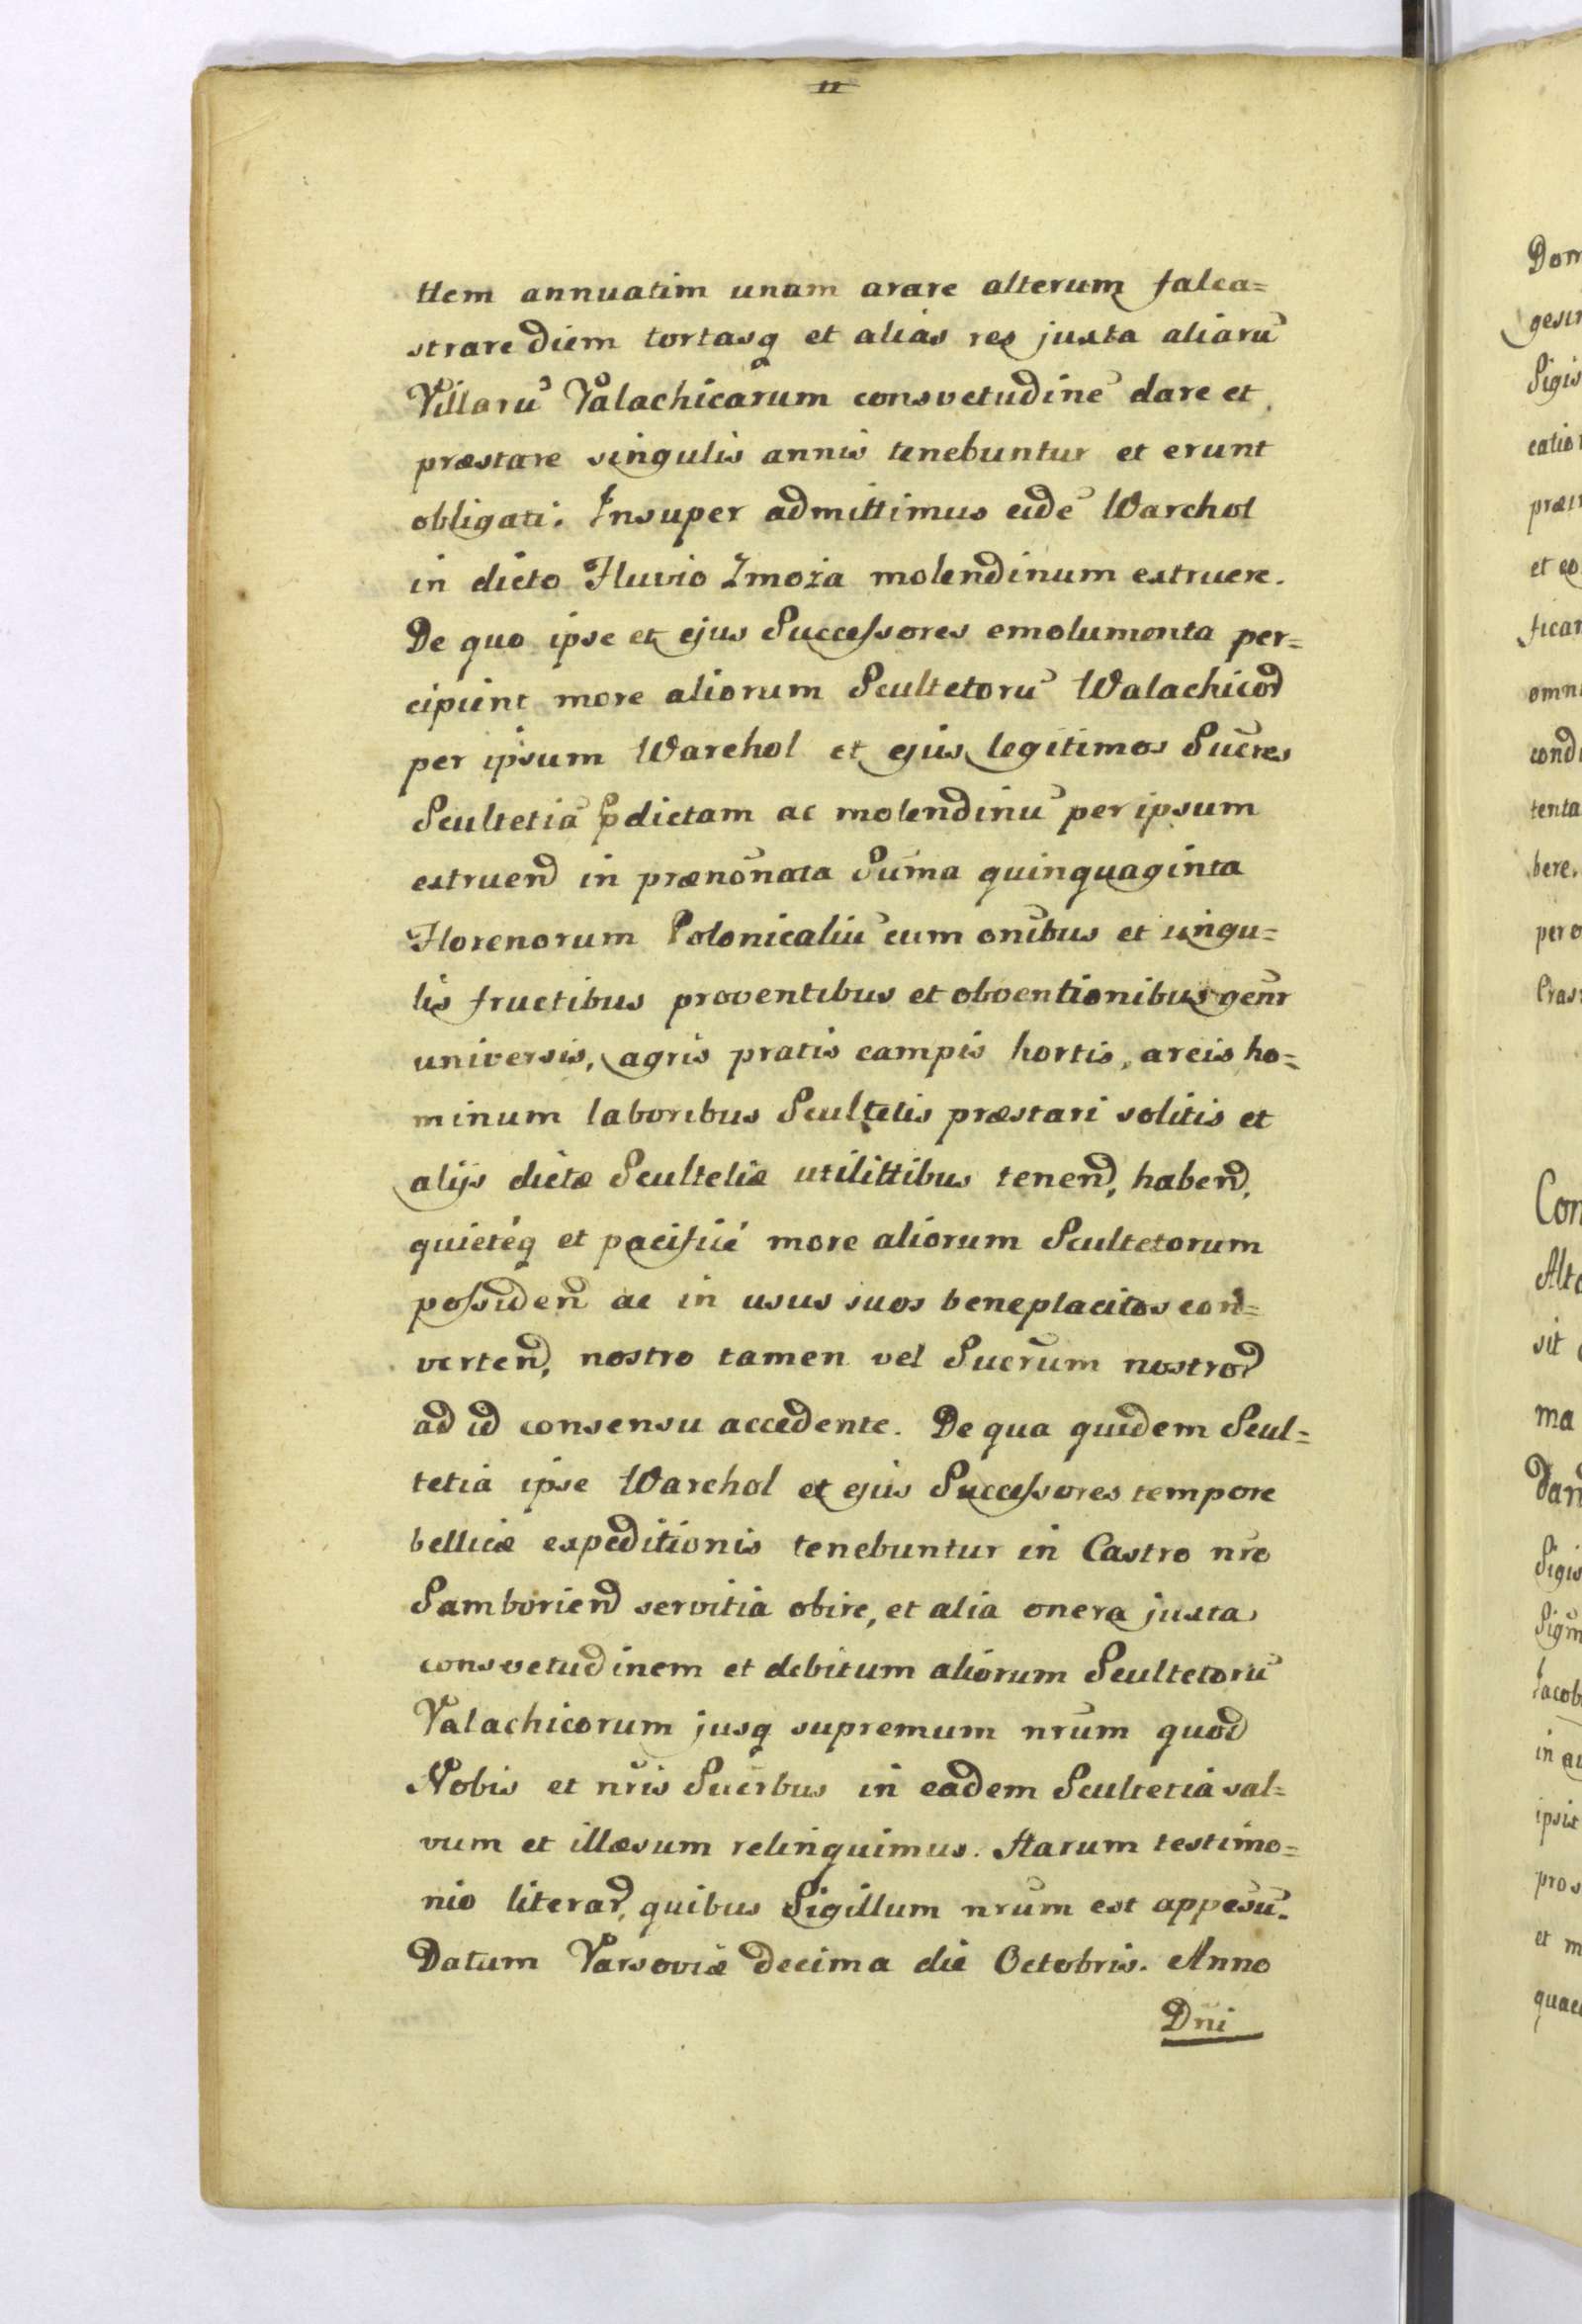 11
Item annuatim unam arare alterum falca=
strare diem tortasq et alias res juxta aliarū
Villarū Valachicarum consvetudinē dare et
præstare singulis annis tenebuntur et erunt
obligati. Insuper admittimus eidē Warchol
in dicto Fluvio Zmoża molendinum extruere.
De quo ipse et ejus Successores emolumenta per=
cipient more aliorum Scultetorū Walachicoꝝ
per ipsum Warchol et ejus legitimos Sucr̄es
Scultetiā p̄dictam ac molendinū per ipsum
extruend̄ in prænōnata Sūma quinquaginta
Florenorum Polonicaliū cum om̄ibus et singu=
lis fructibus proventibus et obventionibus gen̄r
universis, agris pratis campis hortis, areis ho=
minum laboribus Scultetis præstari solitis et
alijs dictæ Scultetiæ utilittibus tenend̄, habend̄,
quietéq et pacifice more aliorum Scultetorum
possidend̄ ac in usus suos beneplacitos con=
vertend̄, nostro tamen vel Sucr̄um nostroꝝ
ad id consensu accedente. De qua quidem Scul=
tetia ipse Warchol et ejus Successores tempore
bellicæ expeditionis tenebuntur in Castro nr̄o
Samboriend̄ servitia obire, et alia onera juxta
consvetudinem et debitum aliorum Scultetorū
Valachicorum jusq supremum nr̄um quod
Nobis et nr̄is Sucr̄bus in eadem Scultetia sal=
vum et illæsum relinquimus. Harum testimo=
nio literaꝝ, quibus Sigillum nr̄um est appēsū.
Datum Varsoviæ decima die Octobris. Anno
Dn̄i